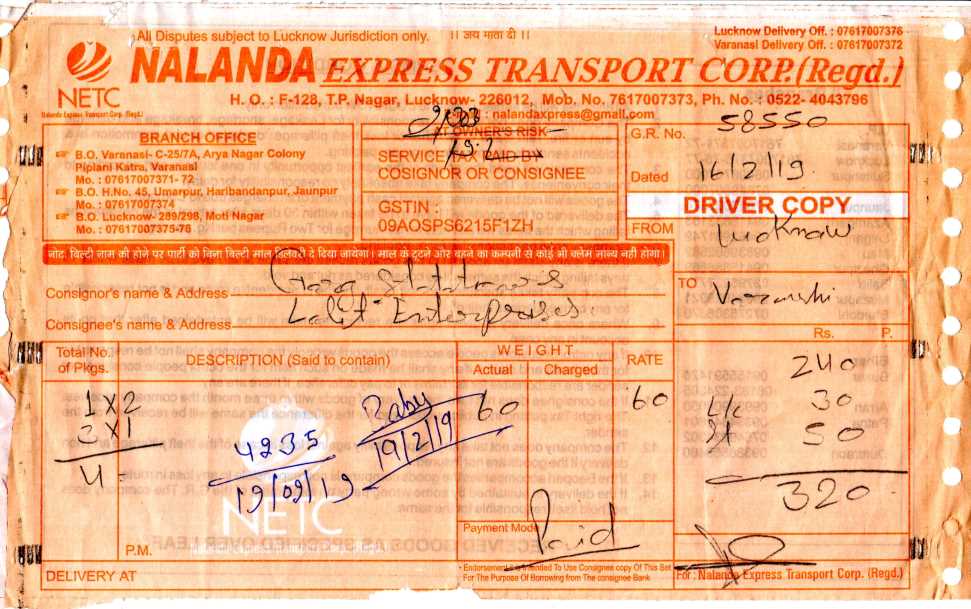 All Disputes subject to Lucknow Jurisdiction only. || जय माता दी ||
Lucknow Delivery Off. : 07617007376
Varanasi Delivery Off. : 07617007372
NALANDA EXPRESS TRANSPORT CORP.(Regd.)
NETC
Nalanda Express Transport Corp. (Regd.)
H. O. : F-128, T.P. Nagar, Lucknow- 226012, Mob. No. 7617007373, Ph. No. : 0522- 4043796
: nalandaxpress@gmail.com
BRANCH OFFICE
B.O. Varanasi- C-25/7A, Arya Nagar Colony
Piplani Katra, Varanasi
Mo. : 07617007371- 72
B.O. H.No. 45, Umarpur, Haribandanpur, Jaunpur
Mo. : 07617007374
B.O. Lucknow- 289/298, Moti Nagar
Mo. : 07617007375-76
AT OWNER'S RISK
SERVICE TAX PAID BY
COSIGNOR OR CONSIGNEE
GSTIN :
09AOSPS6215F1ZH
G.R. No. 58550
Dated 16/2/19.
DRIVER COPY
FROM Lucknow
नोट: बिल्टी नाम की होने पर पार्टी को बिना बिल्टी माल डिलेवरी दे दिया जायगा। माल के टूटने और बहने का कम्पनी से कोई भी क्लेम मान्य नही होगा।
TO Varanshi
Consignor's name & Address
Consignee's name & Address Lalit Enterprises.
Rs. P.
Total No. of Pkgs.
DESCRIPTION (Said to contain)
WEIGHT
Actual Charged
RATE
240
1 X 2 Baby 60 60 L/c 30
2 X 1 4235 19/2/19 St 50
4 19/09/19 320
NETC
Payment Mode Paid
P.M.
DELIVERY AT
Endorsement Is Intended To Use Consignee copy Of This Set
For The Purpose Of Borrowing from The consignee Bank
For : Nalanda Express Transport Corp. (Regd.)